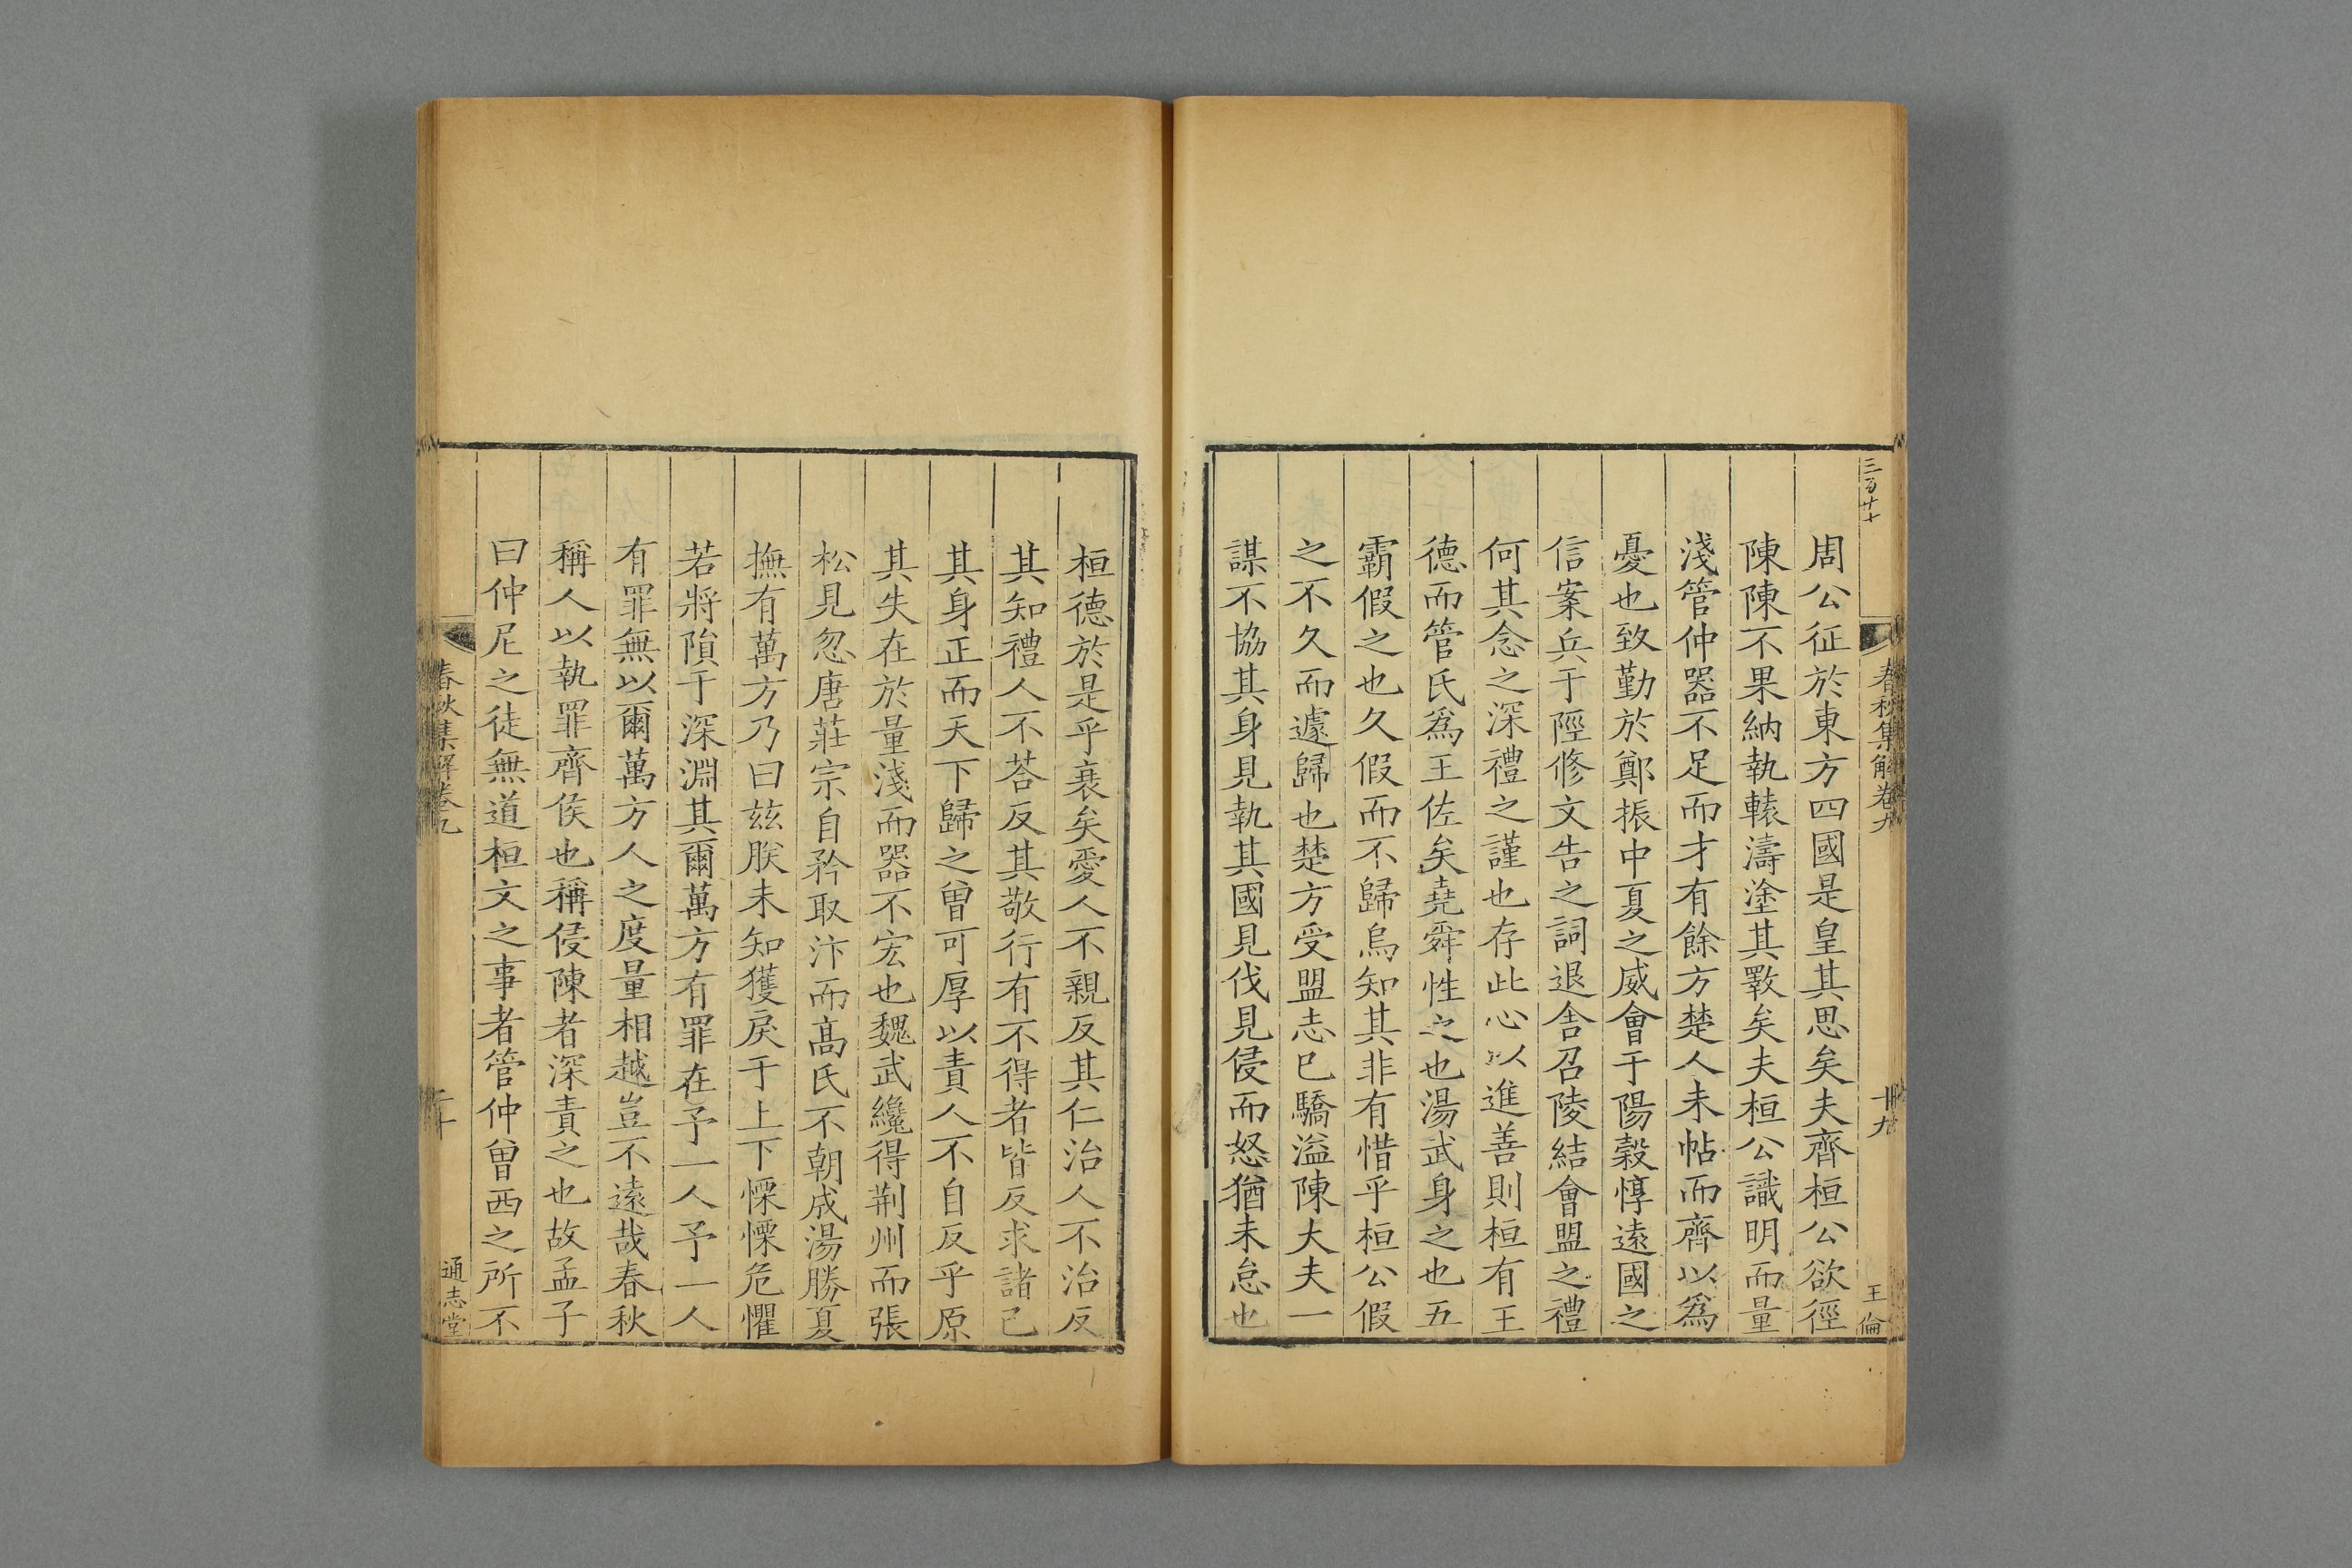 三百廿十
春秋集解卷九
十九
王倫
周公征於東方四國是皇其思矣夫齊桓公欲徑
陳陳不果納執轅濤塗其斁矣夫桓公識明而量
淺管仲器不足而才有餘方楚人未帖而齊以爲
憂也致勤於鄭振中夏之威會于陽穀惇遠國之
信案兵于陘修文告之詞退舍召陵結會盟之禮
何其念之深禮之謹也存此心以進善則桓有王
德而管氏爲王佐矣堯舜性之也湯武身之也五
霸假之也久假而不歸烏知其非有惜乎桓公假
之不久而遽歸也楚方受盟志已驕溢陳大夫一
謀不協其身見執其國見伐見侵而怒猶未怠也
桓德於是乎衰矣愛人不親反其仁治人不治反
其知禮人不荅反其敬行有不得者皆反求諸己
其身正而天下歸之曾可厚以責人不自反乎原
其失在於量淺而器不宏也魏武纔得荆州而張
松見忽唐莊宗自矜取汴而髙氏不朝成湯勝夏
撫有萬方乃曰兹朕未知獲戾于上下慄慄危懼
若將隕于深淵其爾萬方有罪在予一人予一人
有罪無以爾萬方人之度量相越豈不遠哉春秋
稱人以執罪齊侯也稱侵陳者深責之也故孟子
曰仲尼之徒無道桓文之事者管仲曾西之所不
春秋集解卷九
二十
通志堂